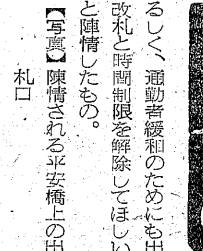 るしく、通勤者緩和のためにも出
改札と時間制限を解除してほしい
と陳情したもの。
【写真】陳情される平安橋上の出
札口